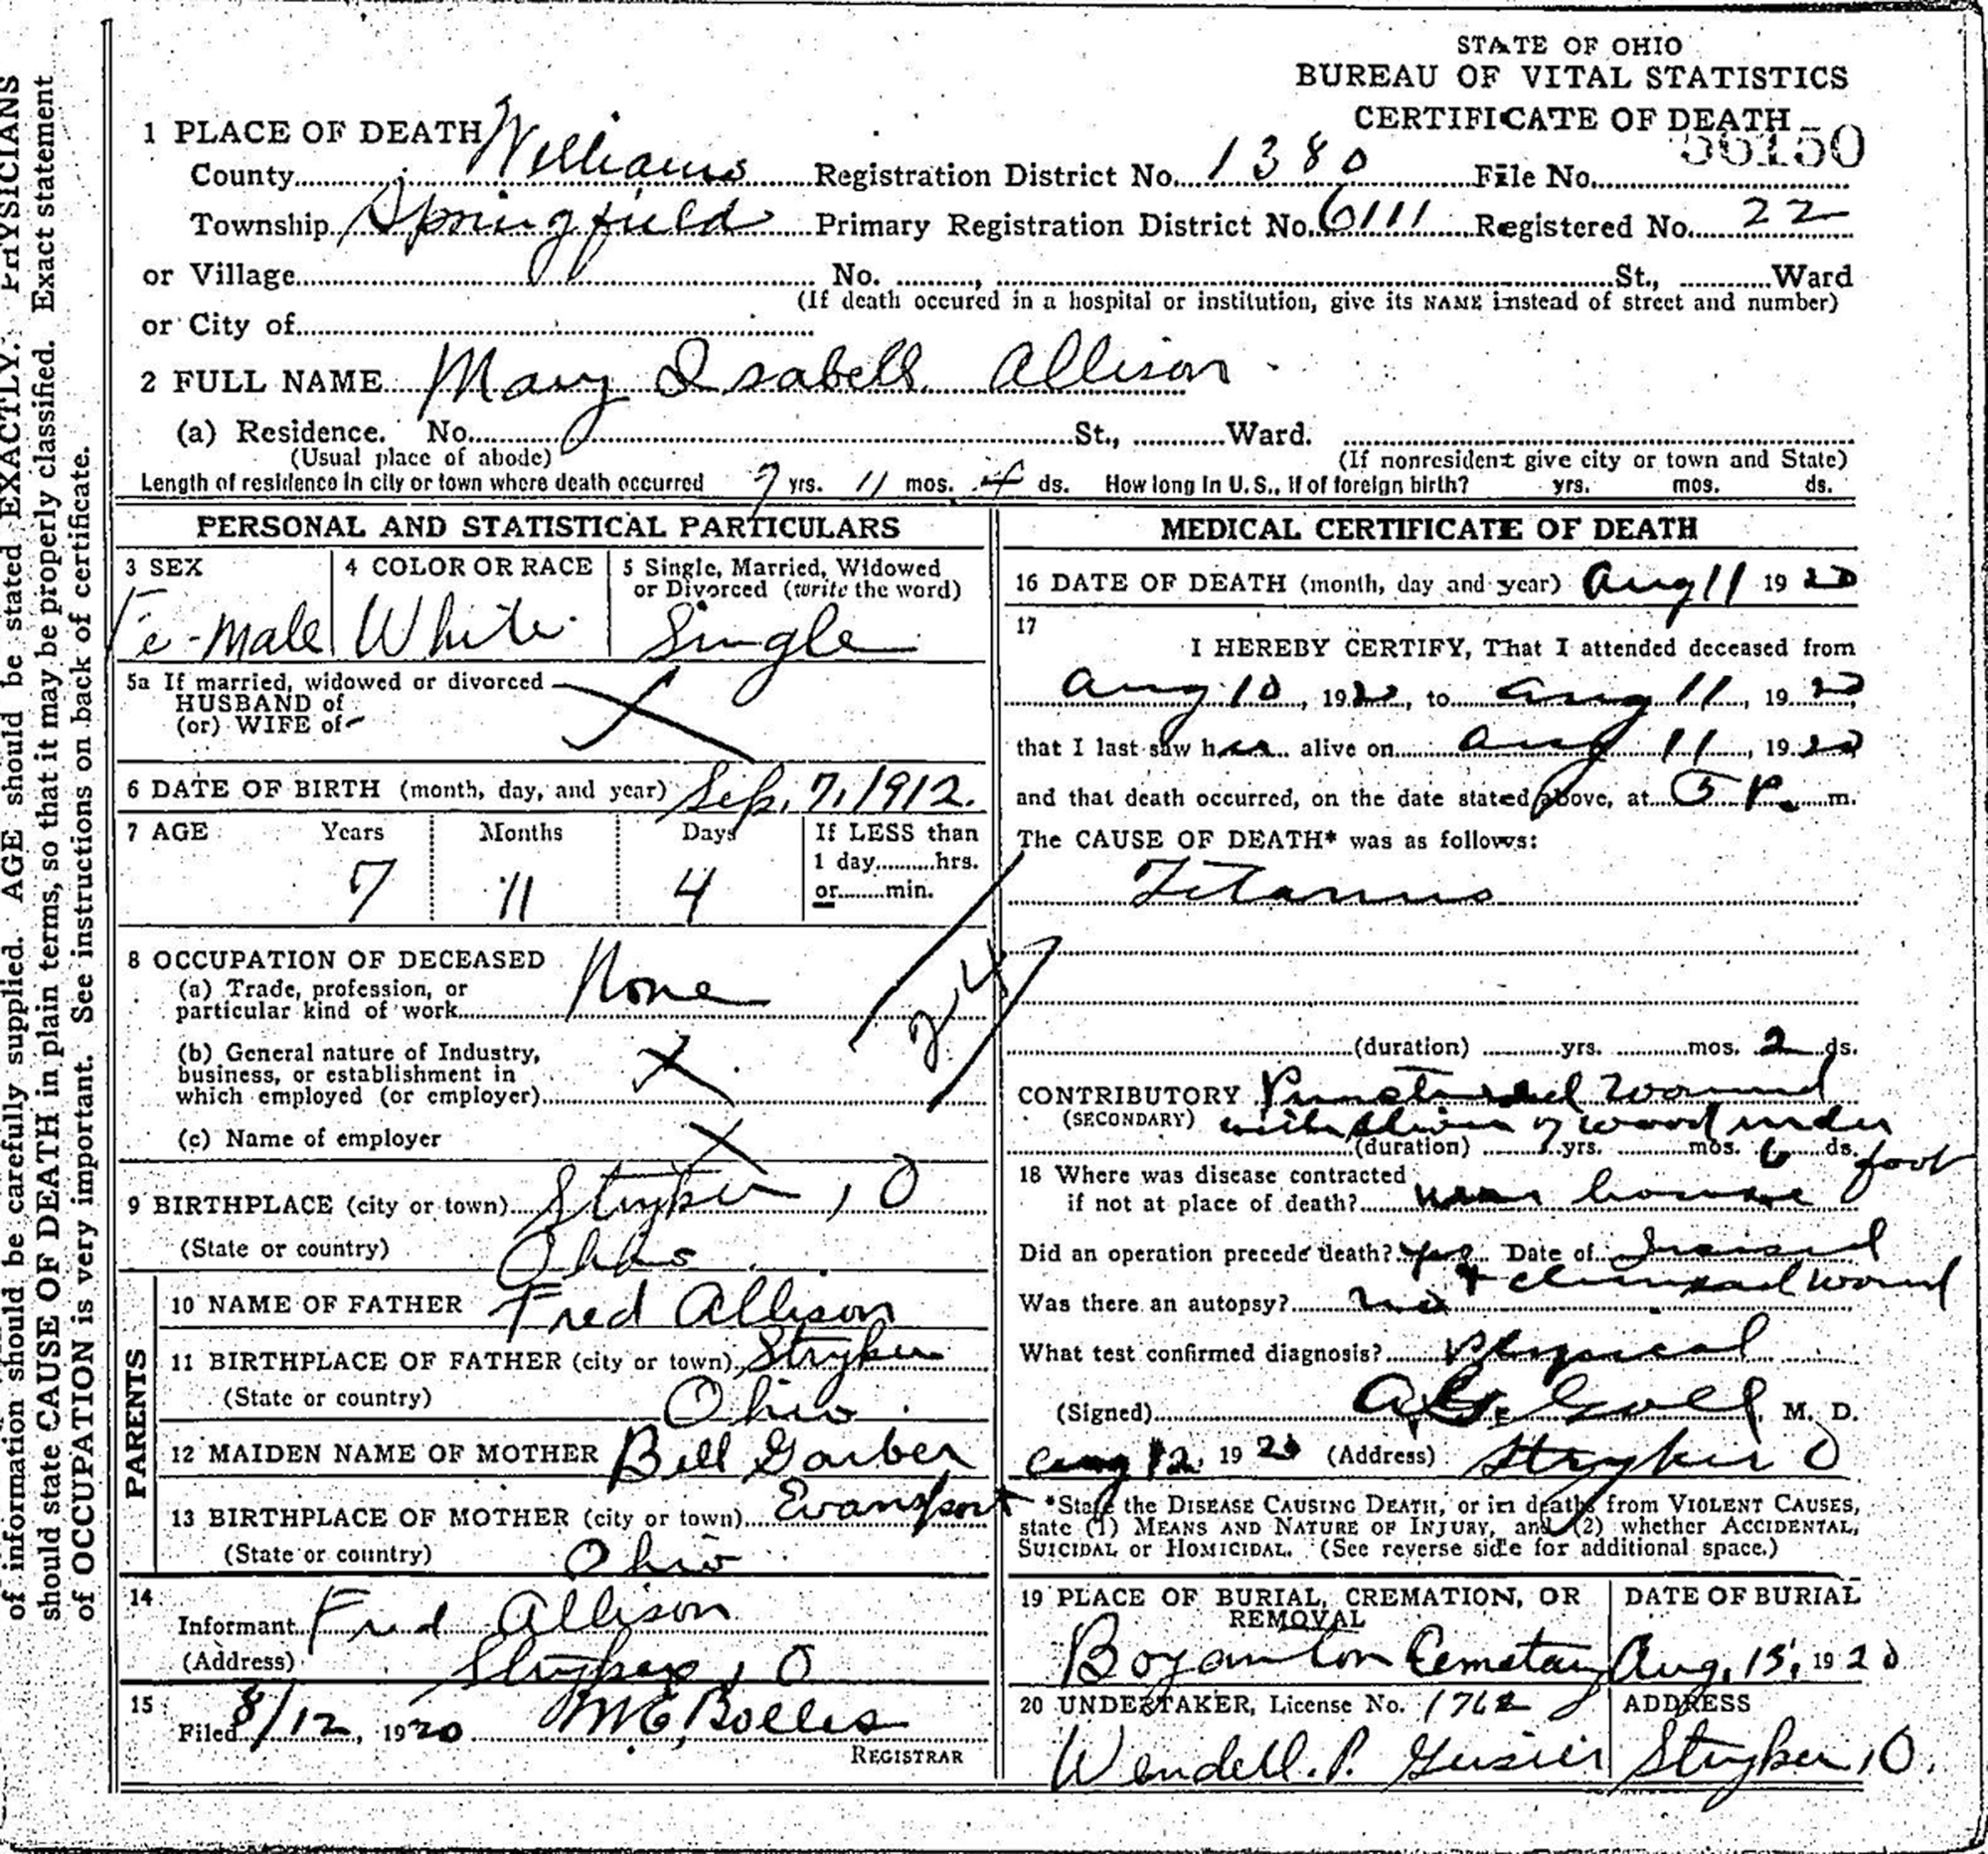 STATE OF OHIO
BUREAU OF VITAL STATISTICS
CERTIFICATE OF DEATH
56150
1 PLACE OF DEATH
County Williams Registration District No. 1380 File No.
Township Springfield Primary Registration District No. 6111 Registered No. 22
or Village No. , St., Ward
(If death occured in a hospital or institution, give its NAME instead of street and number)
or City of
2 FULL NAME Mary Isabell Allison
(a) Residence. No. St., Ward.
(Usual place of abode) (If nonresident give city or town and State)
Length of residence in city or town where death occurred 7 yrs. 11 mos. 4 ds. How long in U. S., if of foreign birth? yrs. mos. ds.
PERSONAL AND STATISTICAL PARTICULARS
3 SEX 4 COLOR OR RACE 5 Single, Married, Widowed
or Divorced (write the word)
Fe-male White Single
5a If married, widowed or divorced
HUSBAND of
(or) WIFE of
6 DATE OF BIRTH (month, day, and year) Sep. 7, 1912.
7 AGE Years Months Days If LESS than
1 day hrs.
7 11 4 or min.
8 OCCUPATION OF DECEASED
(a) Trade, profession, or
particular kind of work None
(b) General nature of Industry,
business, or establishment in
which employed (or employer) X
(c) Name of employer X
24
9 BIRTHPLACE (city or town) Stryker, O
(State or country) Ohio
PARENTS
10 NAME OF FATHER Fred Allison
11 BIRTHPLACE OF FATHER (city or town) Stryker
(State or country) Ohio
12 MAIDEN NAME OF MOTHER Bell Garber
13 BIRTHPLACE OF MOTHER (city or town) Evansport
(State or country) Ohio
14
Informant Fred Allison
(Address) Stryker, O
15
Filed 8/12, 1920 M E Bolles
REGISTRAR
MEDICAL CERTIFICATE OF DEATH
16 DATE OF DEATH (month, day and year) Aug 11 1920
17
I HEREBY CERTIFY, That I attended deceased from
Aug 10, 1920, to Aug 11, 1920
that I last saw her alive on Aug 11, 1920
and that death occurred, on the date stated above, at 5 P. m.
The CAUSE OF DEATH* was as follows:
Titanus
(duration) yrs. mos. 2 ds.
CONTRIBUTORY Punctured wound
(SECONDARY) with sliver of wood under
foot
(duration) yrs. mos. 6 ds.
18 Where was disease contracted
if not at place of death? near house
Did an operation precede death? yes Date of Incised
+ cleansed wound
Was there an autopsy? no
What test confirmed diagnosis? Physical
(Signed) Goll, M. D.
Aug 12, 1920 (Address) Stryker O
*State the DISEASE CAUSING DEATH, or in deaths from VIOLENT CAUSES,
state (1) MEANS AND NATURE OF INJURY, and (2) whether ACCIDENTAL,
SUICIDAL or HOMICIDAL. (See reverse side for additional space.)
19 PLACE OF BURIAL, CREMATION, OR
REMOVAL
DATE OF BURIAL
Boyanton Cemetary Aug. 13, 1920
20 UNDERTAKER, License No. 1762 ADDRESS
Wendell. P. Stryker, O.
of information should be carefully supplied. AGE should be stated EXACTLY. PHYSICIANS
should state CAUSE OF DEATH in plain terms, so that it may be properly classified. Exact statement
of OCCUPATION is very important. See instructions on back of certificate.